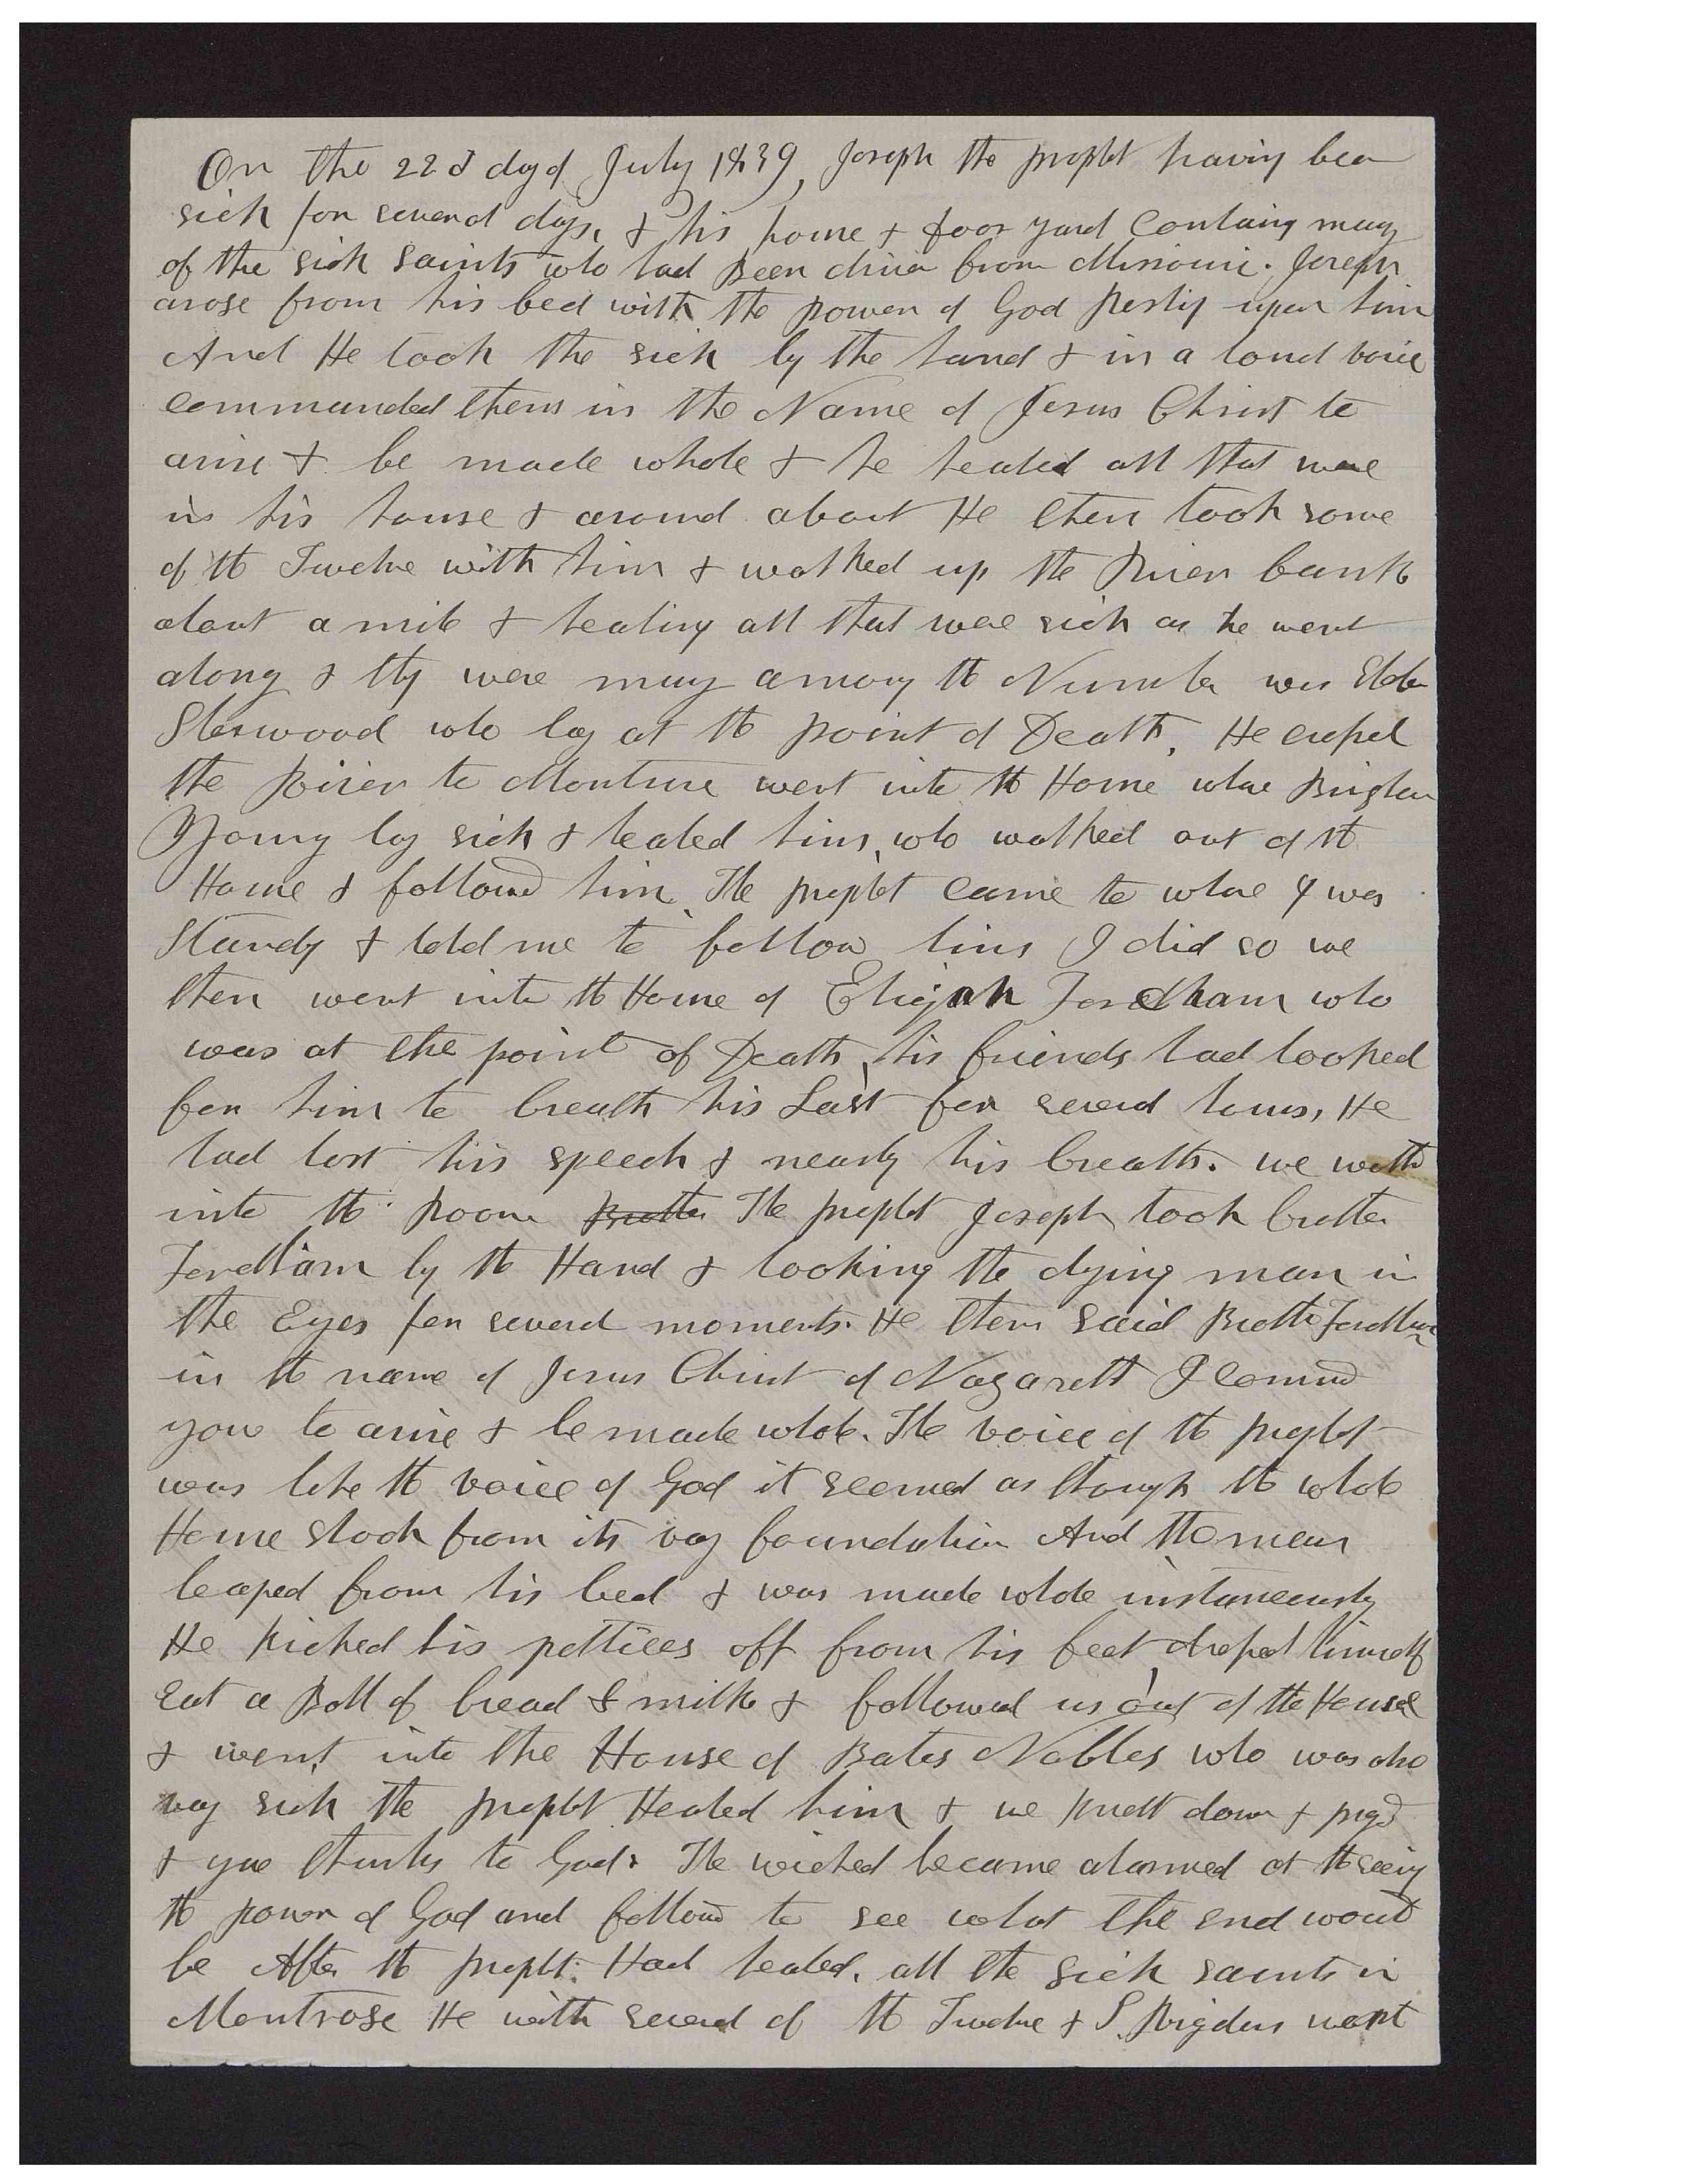 On the 22d day of July 1839, Joseph the prophet having been
sick for several days, & his house & door yard containing many
of the sick saints who had Been driven from Missouri. Joseph
arose from his bed with the power of God Resting upon him
And He took the sick by the hand & in a loud voice
commanded them in the Name of Jesus Christ to
arise & be made whole & he healed all that were
in his house & around about He then took some
of the Twelve with him & walked up the River bank
about a mile & healing all that were sick as he went
along & they were many among the Number was Elder
Sherwood who lay at the point of Death, He crossed
the River to Montrose went into the House whare Brigham
Young lay sick & healed him, who walked out of the
House & followed him. The prophet came to whare I was
Standing & told me to follow him I did so we
then went into the House of Elijah Fordham who
was at the point of Death, his friends had looked
for him to breath his Last for several hours, He
had lost his speech & nearly his breath. we
into the Room Brother The prophet Joseph took brother
Fordham by the Hand & looking the dying man in
the Eyes for several moments. He then said Brother Fordham
in the name of Jesus Christ of Nazareth I command
you to arise & be made whole. The voice of the prophet
was like the voice of God it seemed as though the whole
House shook from its very foundation And the man
leaped from his bed & was made whole instaneously
He kicked his poltices off from his feet dressed himself
Eat a Boll of bread & milk & followed us out of the House
& went into the House of Bates Nobles who was also
very sick the prophet Healed him & we knelt down & prayed
& gave thanks to God. The wicked became alarmed at the seeing
the power of God and followed to see what the end would
be After the prophet Had healed, all the sick saints in
Montrose He with several of the Twelve & S. Rigdon went